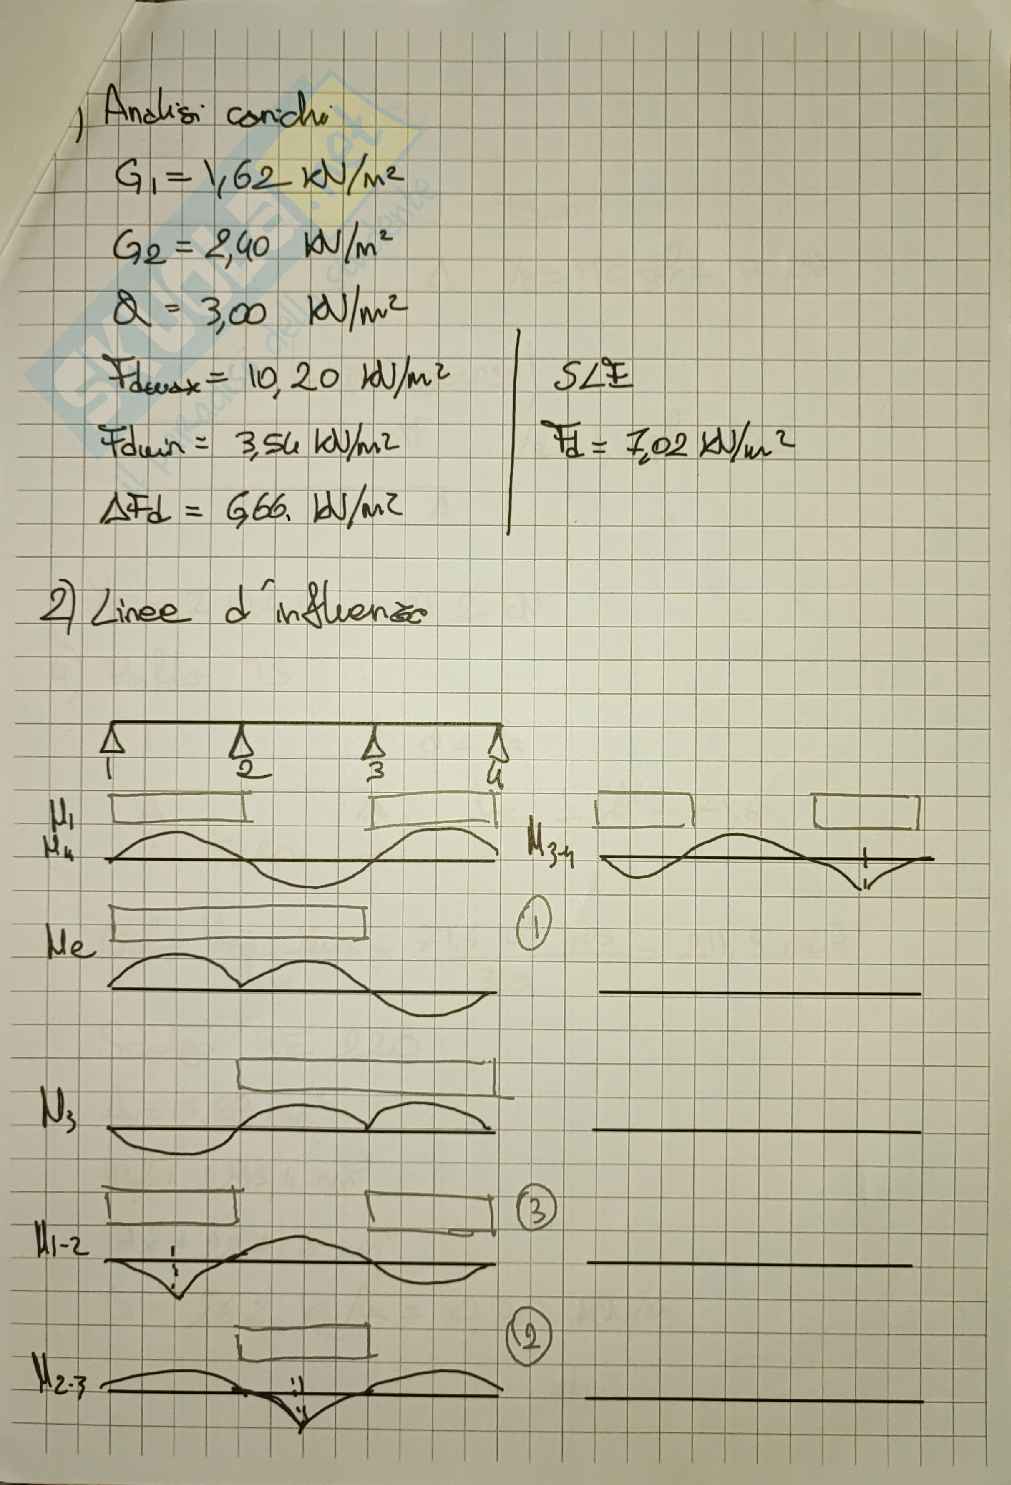 1) Analisi carichi
G1 = 1,62 kN/m²
G2 = 2,40 kN/m²
Q = 3,00 kN/m²
Fdmax = 10,20 kN/m²
Fdmin = 3,54 kN/m²
ΔFd = 6,66. kN/m²
SLE
Fd = 7,02 kN/m²
2) Linee d'influenza
1 2 3 4
M1
M4
M3-4
1
M2
M3
3
M1-2
2
M2-3
SKUOLA.net